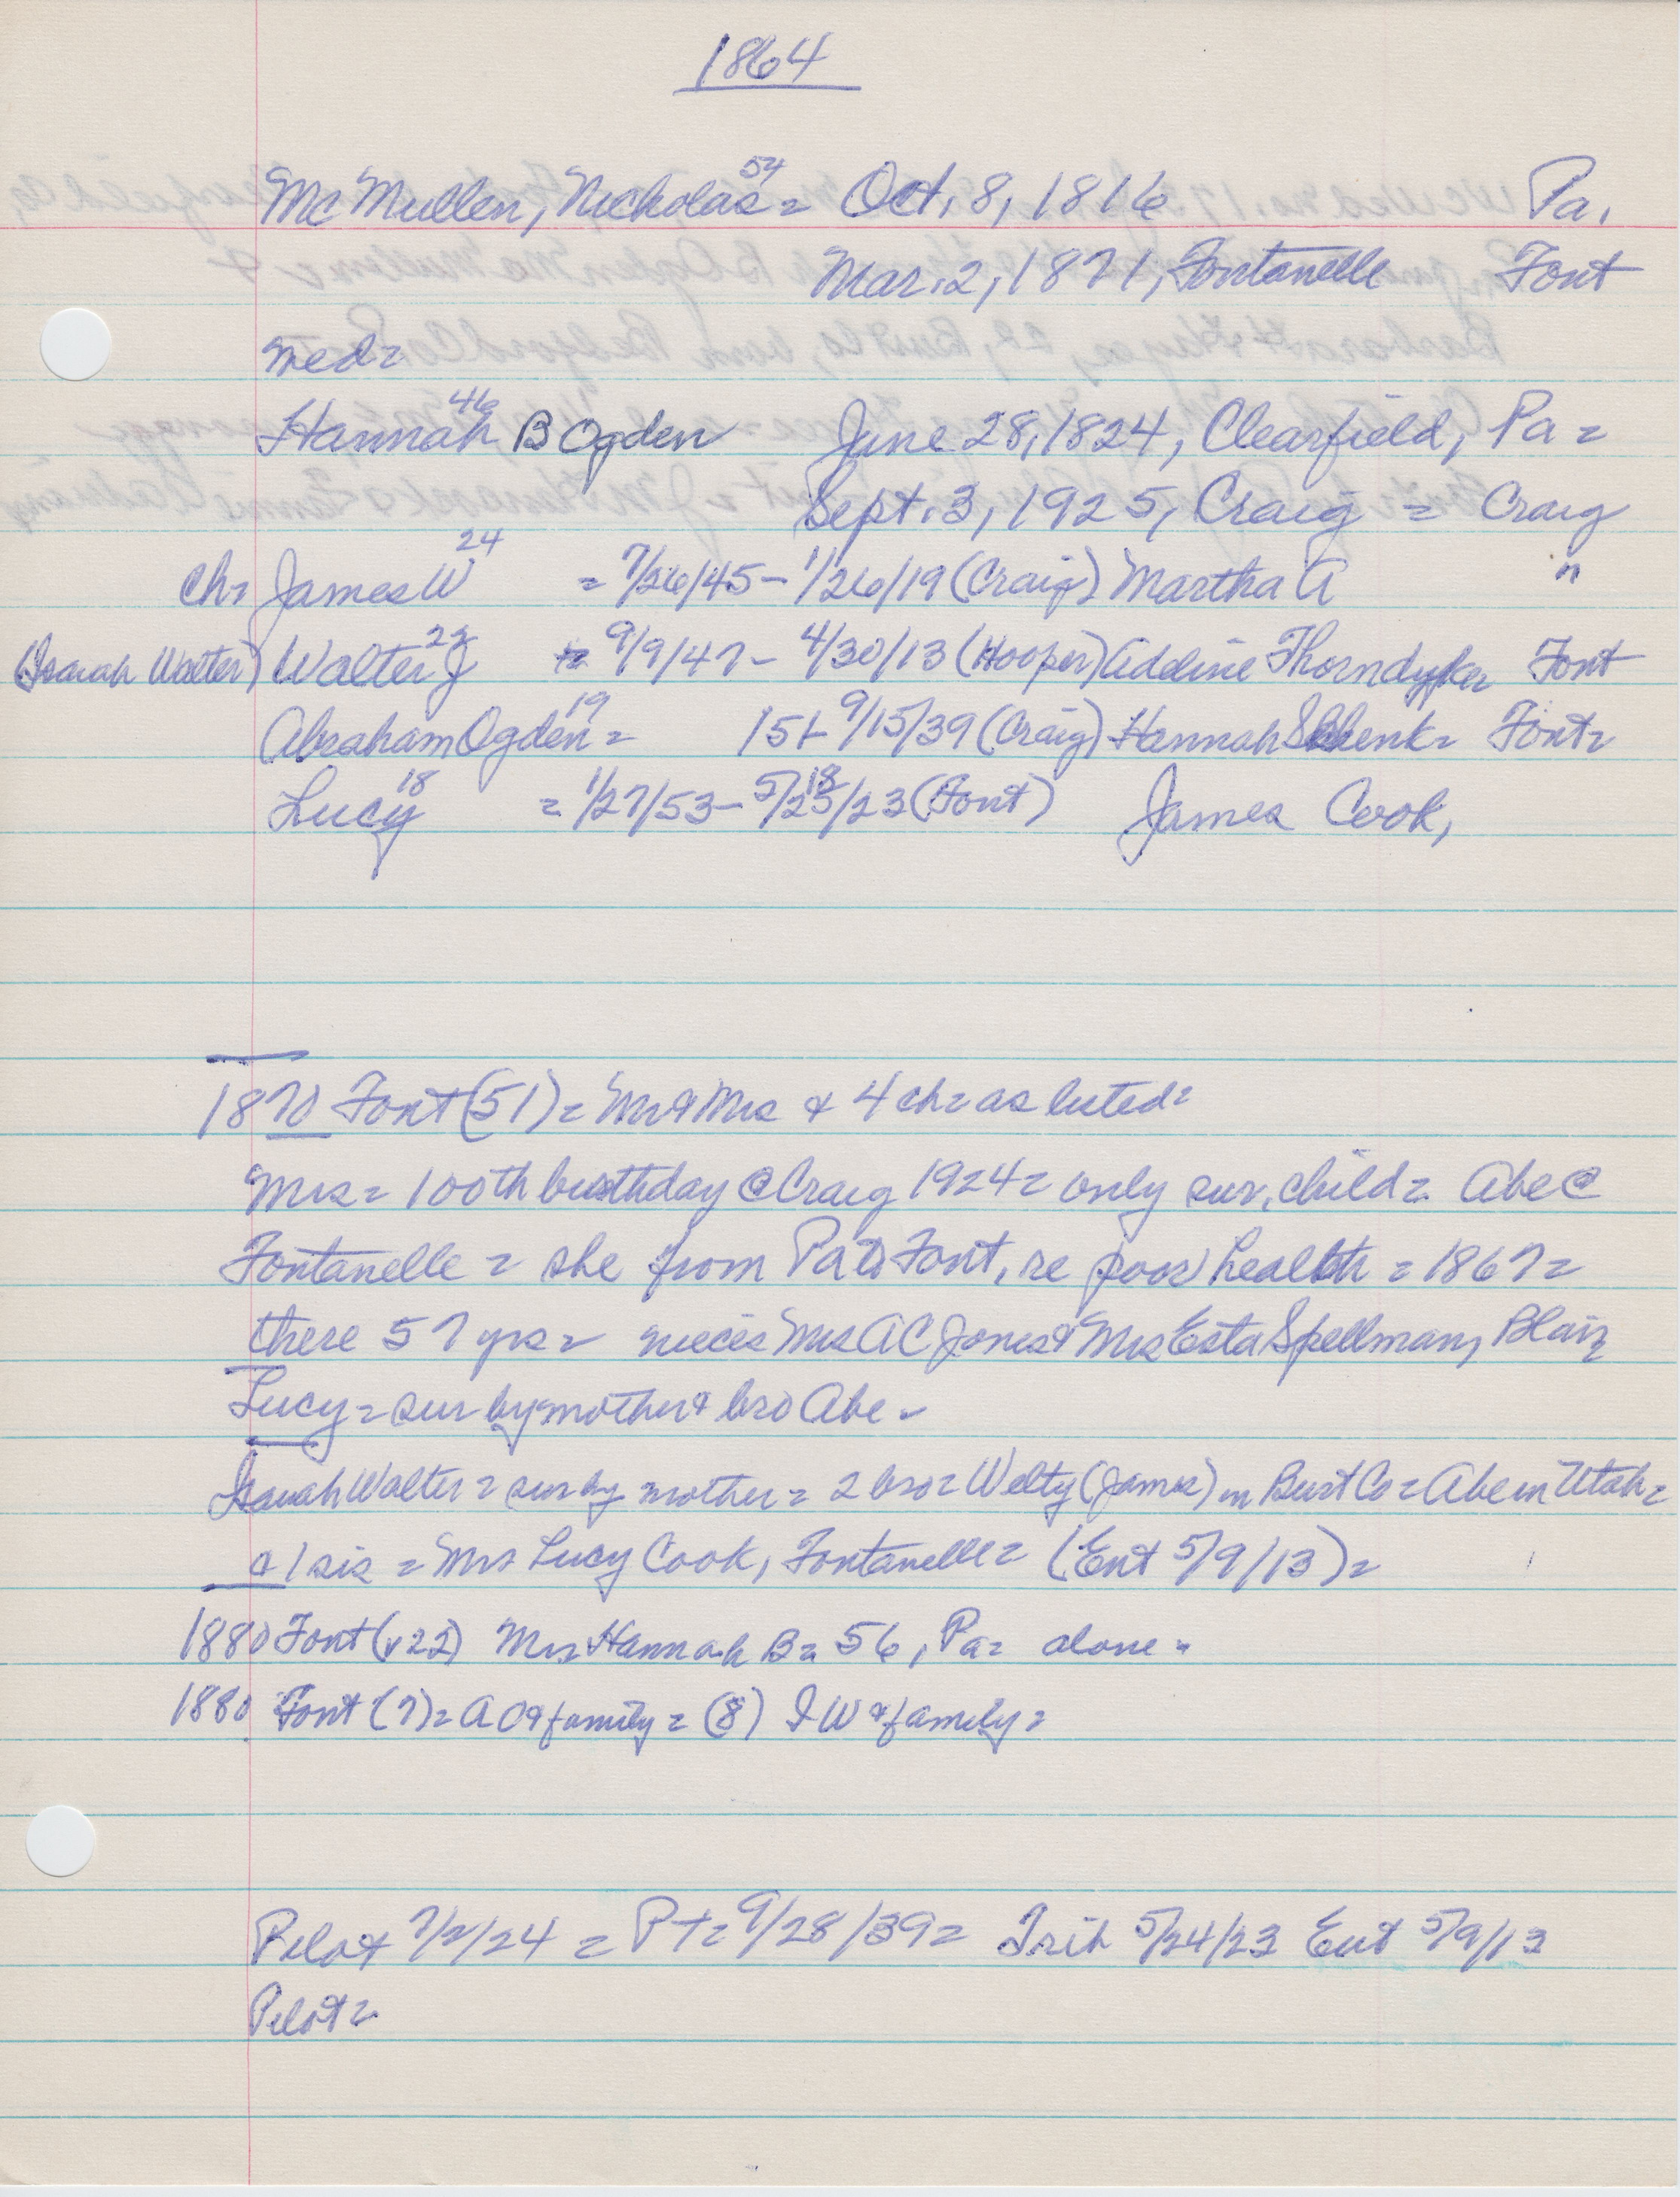 1864
McMullen, Nicholas 54 = Oct. 8, 1816 Pa.
Mar. 2, 1871, Fontanelle Font
med=
Hannah 46 B Ogden June 28, 1824, Clearfield, Pa =
Sept. 3, 1925, Craig = Craig
ch= James W 24 = 7/26/45 - 1/26/19 (Craig) Martha A "
(Isaiah Walter) Walter J 22 = 9/9/47 - 4/30/13 (Hooper) Addine Thorndyke Font
Abraham Ogden 19 = 151- 9/15/39 (Craig) Hannah Shenk = Font=
Lucy 18 = 1/27/53 - 5/23/23 (Font) James Cook,
1870 Font (51) = Mr & Mrs & 4 ch = as listed=
Mrs = 100th birthday @ Craig 1924 = only sur. child = Abe @
Fontanelle = she from Pa to Font, re poor health = 1867 =
there 57 yrs = nieces Mrs A C Jones & Mrs Esta Spellman, Blair
Lucy = sur by mother & bro Abe -
Isaiah Walter = sur by mother = 2 bro = Welty (James) in Burt Co = Abe in Utah =
& 1 sis = Mrs Lucy Cook, Fontanelle = (Ent 5/9/13) =
1880 Font (v22) Mrs Hannah B = 56, Pa = alone -
1880 Font (7) = A O & family = (8) I W & family =
Pilot 7/2/24 = Pt = 9/28/39 = Trib 5/24/23 Ent 5/9/13
Pilot =